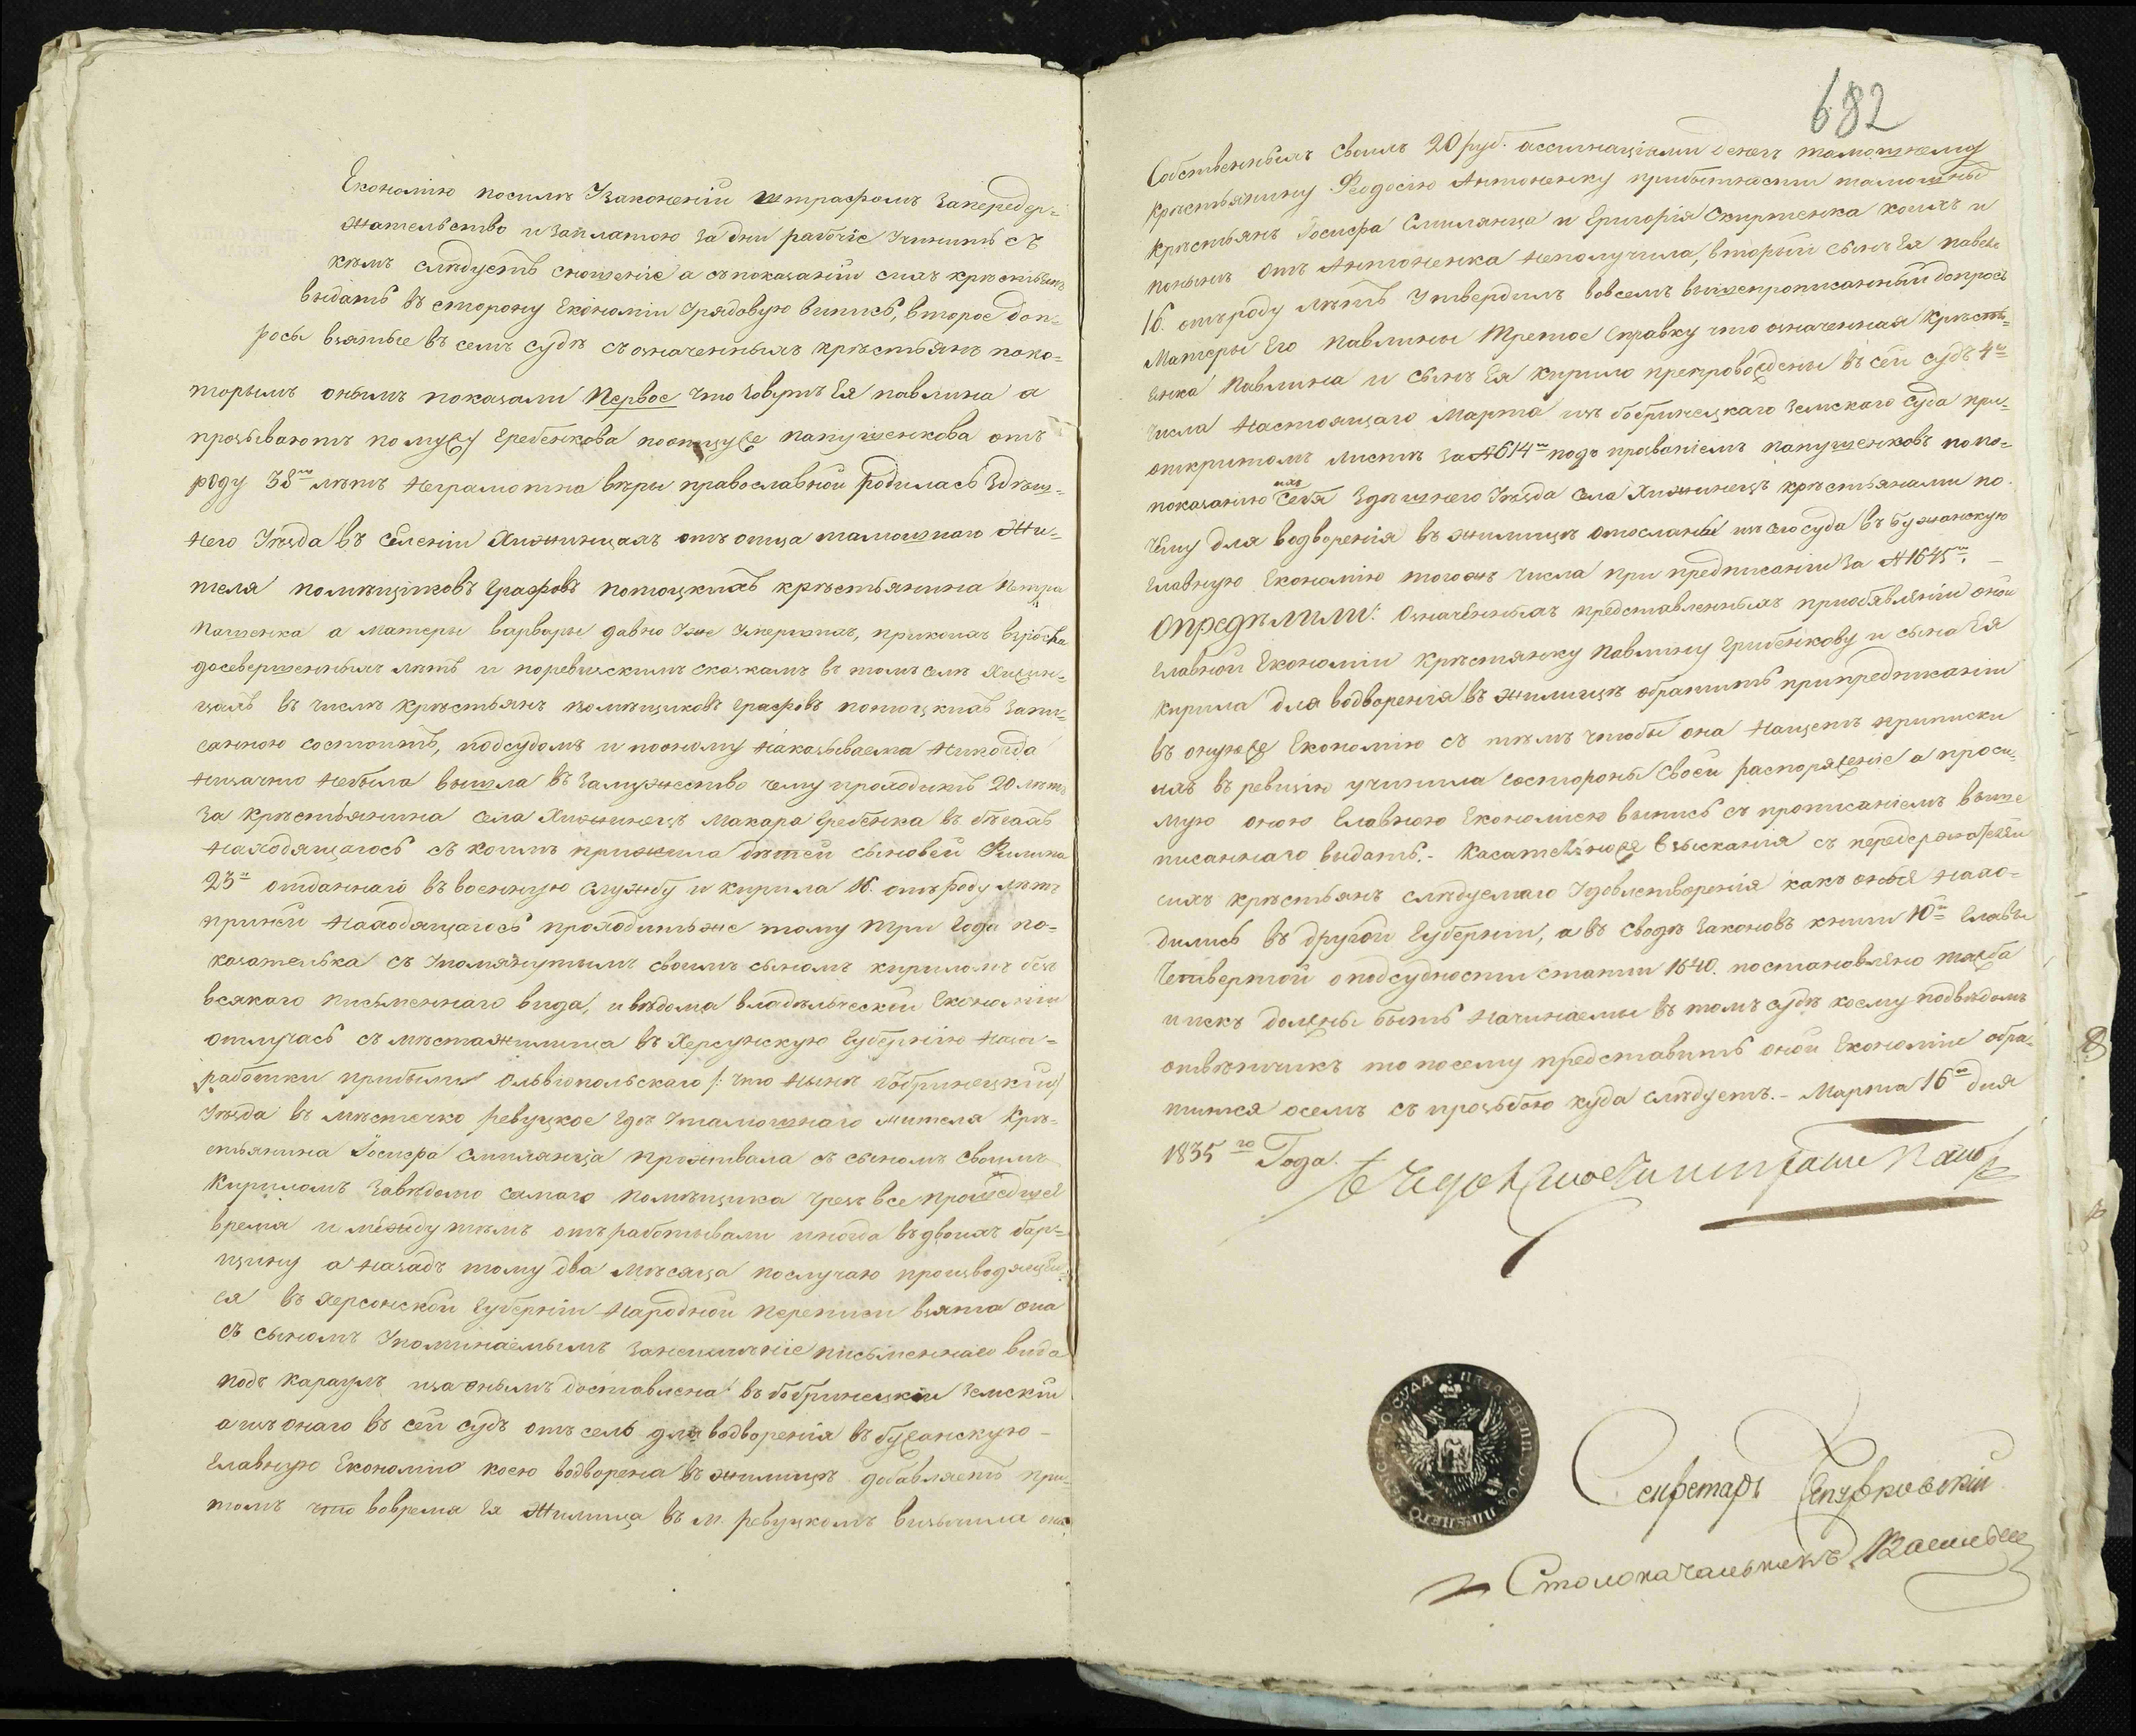 Економію посилѣ Узаконеній штрафомъ запередер=
жательство и заплатою за дни рабочіе Учинить съ
кѣмъ слѣдуетъ сношеніе а съ показаній сихъ крѣстьянъ
выдать въ сторону Економіи Урядовую выпись, второе доп=
росы взятые въ семъ судѣ съ означенныхъ крѣстьянъ пако=
торымъ онымъ показали Первое что зовутъ Ея павлина а
прозываютъ по мужу Гребенкова поотцуже папушенкова отъ
роду 38 лѣтъ неграмотна вѣры православной родилась Здѣш=
него Уѣзда въ селеніи Хижинцахъ отъ отца тамошнаго Жи=
теля помѣщиковъ Графовъ потоцкихъ крѣстьянина Петра
а матеры варвары давно уже Умершихъ, прикоихъ
досовершенныхъ лѣтъ и поревизскимъ сказкамъ въ томъ селѣ Хижин=
цахъ въ числѣ крѣстьянъ помѣщиковъ Графовъ потоцкихъ запи=
санною состоитъ, подсудомъ и пооному наказываема никогда
низачто небыла вышла въ замужество чему проходитъ 20 лѣтъ
за крѣстьянина села Хижинецъ Макара Гребенка въ бѣгахъ
находящагось съ коимъ прижила дѣтей сыновей Филипа
23 отданнаго въ военную службу и кирила 16. отъ роду лѣтъ
приней находящагось проходитъже тому три года по=
казателька съ Упомянутымъ своимъ сыномъ кириломъ безъ
всякаго письменнаго вида, и вѣдома владѣльческой Економіи
отлучась съ мѣстажилища въ Херсунскую Губернію назо=
работки прибыли Ольвіопольскаго /: что нынѣ бобринецкій/
Уѣзда въ мѣстечко ревуцкое где Утамошнаго жителя Крѣ=
стьянина Іосифа Смилянца проживала съ сыномъ своимъ
Кириломъ завѣдомо самаго помѣщика чрезъ все прошедшее
время и между тѣмъ отъработывали иногда въдвоихъ бар=
щину а назадъ тому два мѣсяца послучаю производящей=
ся въ херсонской Губерніи народной переписи взята она
съ сыномъ Упоминаемымъ занеимѣніе письменнаго вида
подъ караулъ иза онымъ доставлена въ бобринецкій земскій
а изъ онаго въ сей судъ отъ сель для водворенія въ бужанскую
Главную Економію коею водворена въ жилищѣ добавляетъ при=
томъ что вовремя Ея жилища въ м. ревуцкомъ вызычила она
682
Собственныхъ своихъ 20 руб. ассигнаціями денегъ тамошнему
крѣстьянину Феодосію Антоненку прибытности тамошныхъ
крѣстьянъ Іосифа Смилянца и Григорія Скиртенка коихъ и
понынѣ отъ Антоненка неполучила, вторый сынъ Ея
16. отъроду лѣтъ Утвердилъ вовсемъ вышепрописанный допросъ
Матеры Его Павлины Третое Справку что означенная крѣсть=
янка Павлина и сынъ Ея Кирило препровождены въ сей судъ 4
числа настоящаго Марта изъ бобринецкаго земскаго Суда при
открытомъ листѣ за №614 подъ прозваніемъ папушенковъ по по=
показанію нахъ Себя здѣшнего Уѣзда села Хижинецъ крѣстьянами по
чему для водворенія въ жилищѣ отосланы изъ сего суда въ бужанскую
Главную Економію тогожъ числа при предписаніи за №1645.
Опредѣлили: Означенныхъ представленныхъ приобявленіи оной
Главной Економіи крѣстянку Павлину Грибенкову и сына Ея
кирила для водворенія въ жилищѣ обратить припредписаніи
въ онуюже Економію съ тѣмъ чтобы она нащетъ приписки
ихъ въ ревизію учинила состороны своей распоряженіе а проси=
мую оною Главною Економіею выпись съ прописаніемъ выше
писаннаго выдать. - Касательноже взысканія съ передержателей
сихъ крѣстьянъ слѣдуемаго Удовлетворенія какъ оные нахо=
дились въ другой Губерніи, а въ Сводѣ законовъ книги 10 Главы
Четвертой о подсудности статіи 1640. постановлено тяжба
и искъ должны быть начинаемы въ томъ судѣ коему подвѣдомъ
отвѣтчикъ то посему представить оной Економіи обра=
титися осемъ съ прозьбою куда слѣдуетъ. - Марта 16 дня
1835 го Года.
Секретарь
Столоначальникъ